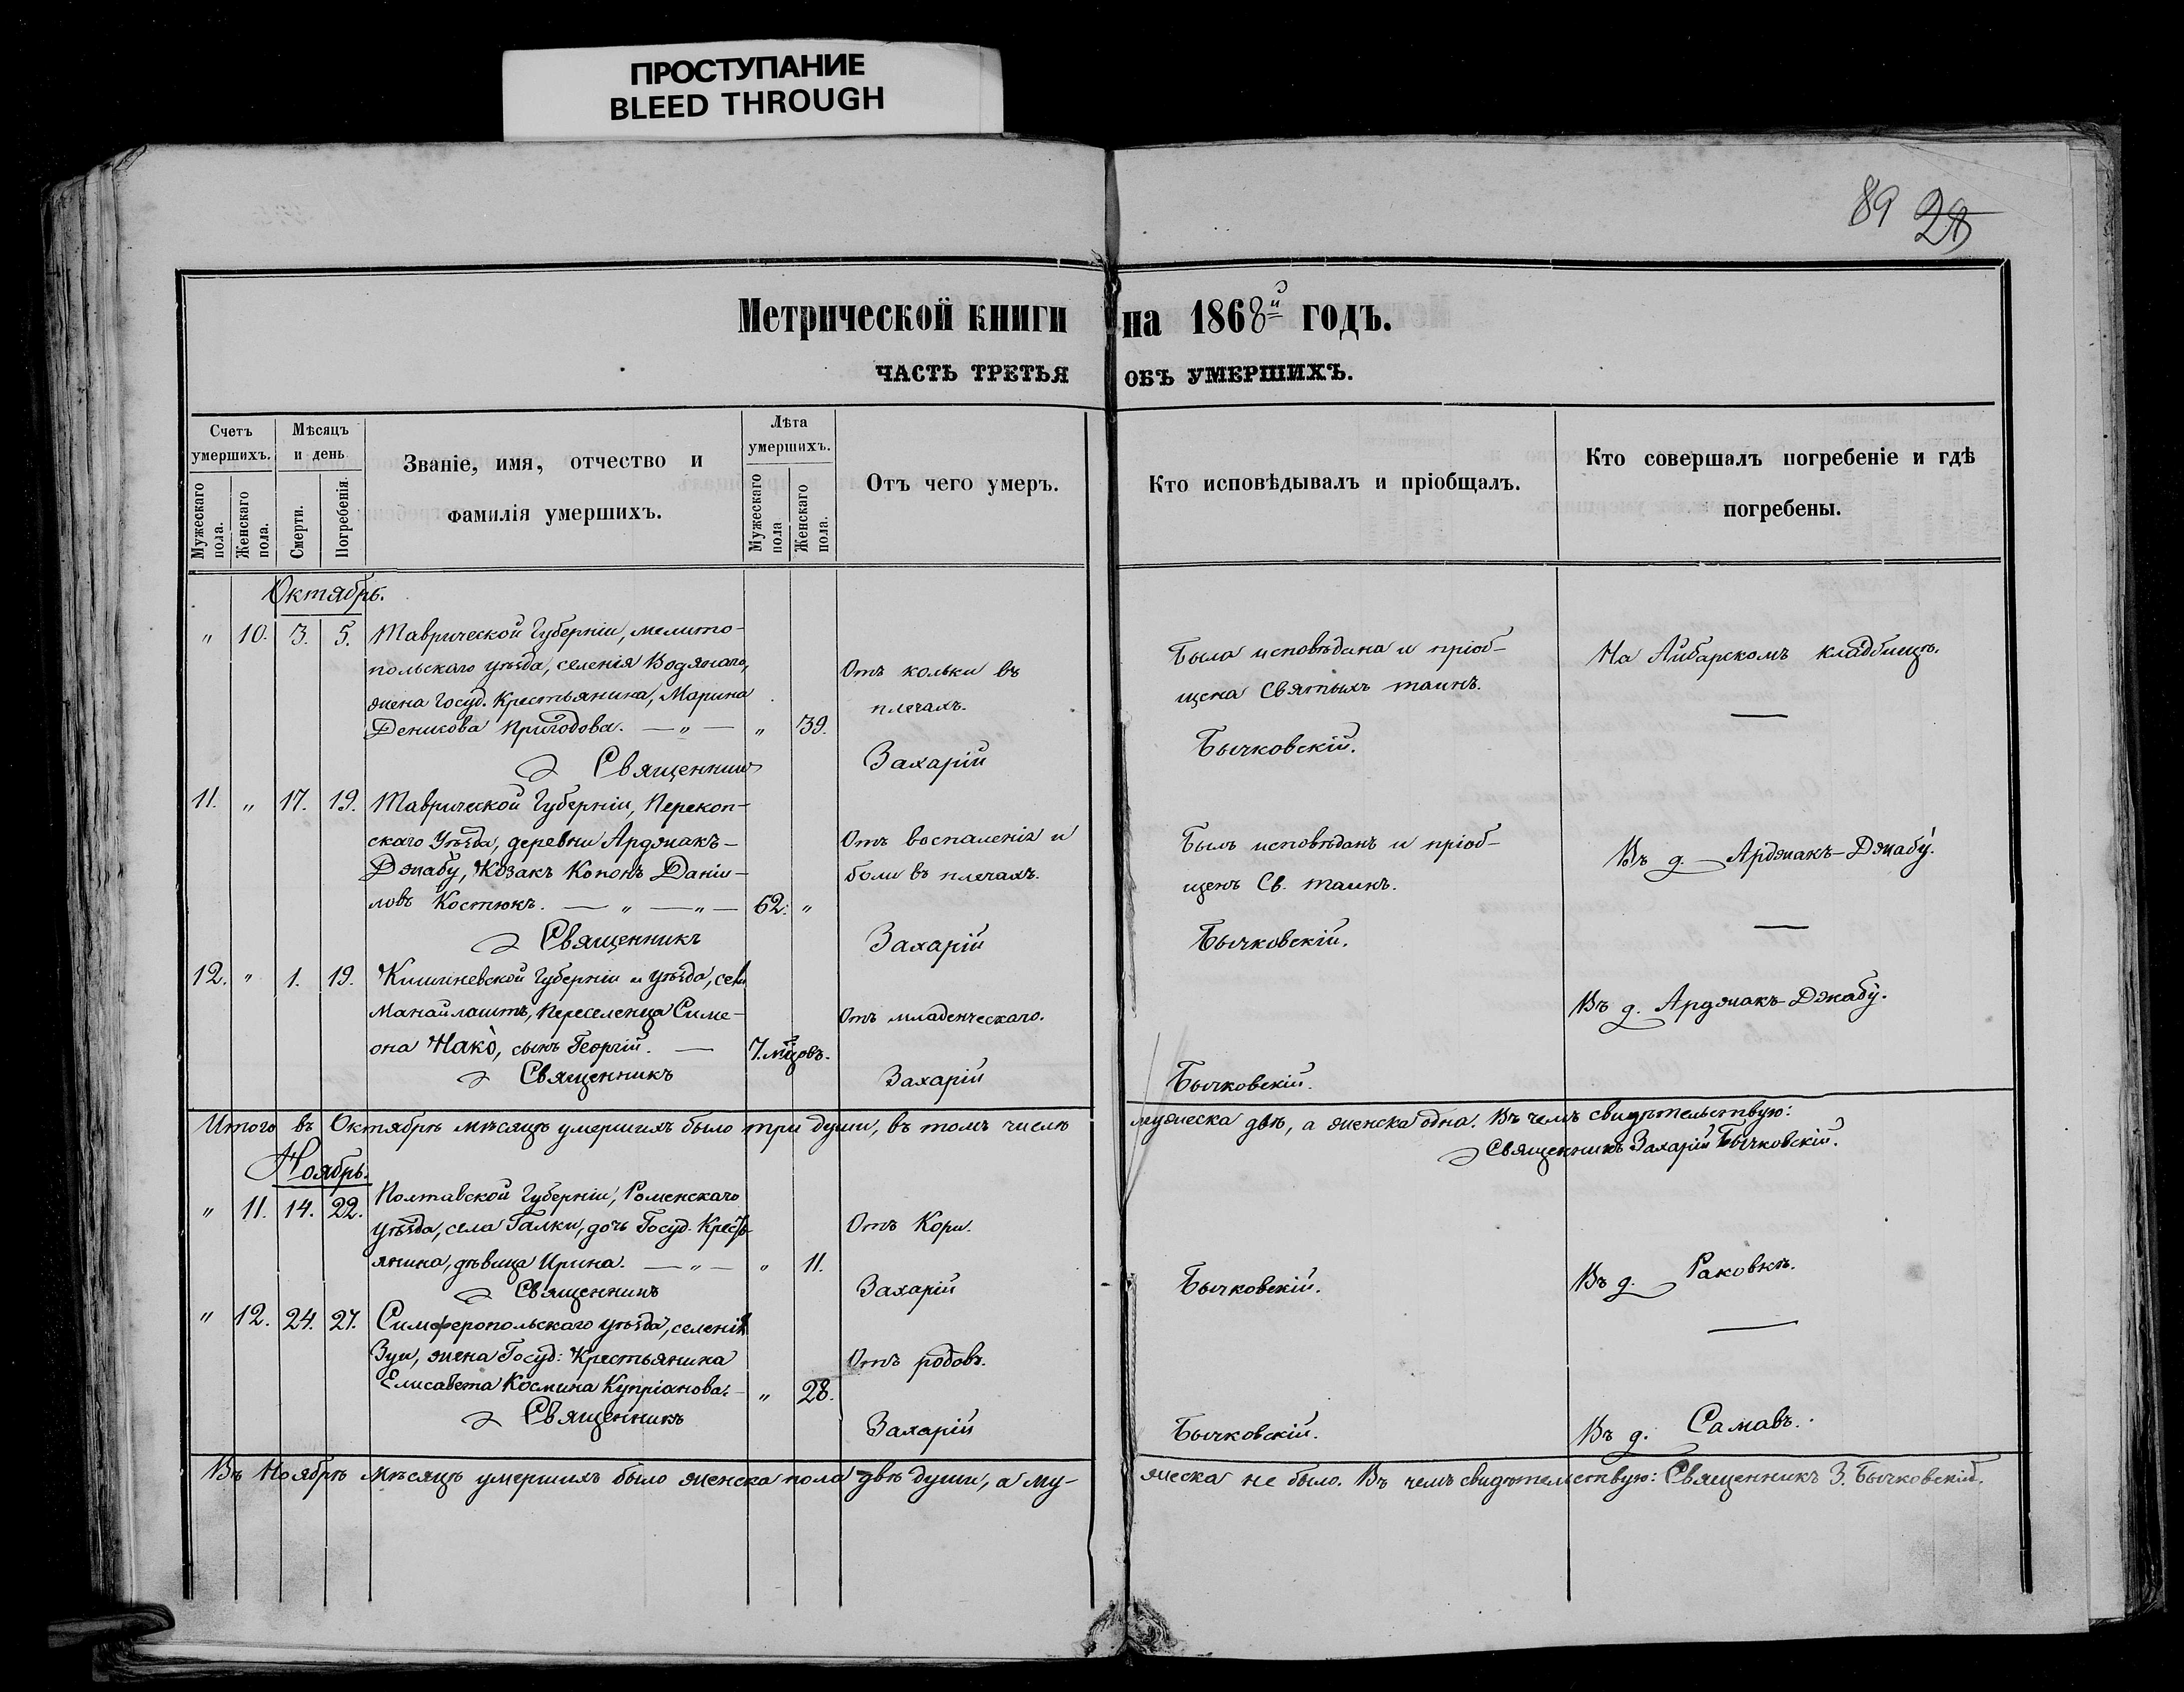 ПРОСТУПАНИЕ
BLEED THROUGH
89 28
Метрической книги на 1868й годъ.
ЧАСТЬ ТРЕТЬЯ ОБЪ УМЕРШИХЪ.
Счетъ умершихъ.
Мужескаго пола.
Женскаго пола.
Мѣсяцъ и день
Смерти.
Погребенія.
Званіе, имя, отчество и фамилія умершихъ.
Лѣта умершихъ.
Мужескаго пола
Женскаго пола.
Отъ чего умеръ.
Кто исповѣдывалъ и пріобщалъ.
Кто совершалъ погребеніе и гдѣ погребены.
Октябрь.
" 10. 3. 5. Таврической Губерніи, мелито-
польскаго уѣзда, селенія Водянаго,
жена Госуд. Крестьянина, Марина
Деникова Пригодова. — " — " 39.
Отъ кольки въ
плечахъ.
Была исповѣдана и пріоб-
щена Святыхъ таинъ.
На Айбарскомъ кладбищѣ.
Священникъ Захарій Бычковскій.
11. " 17. 19. Таврической Губерніи, Перекоп-
скаго Уѣзда, деревни Арджакъ-
Джабу, Козакъ Кононъ Даніи-
ловъ Костюкъ. — " — " — 62. "
Отъ воспаленія и
боли въ плечахъ.
Былъ исповѣданъ и пріоб-
щенъ Св. таинъ.
Въ д. Арджакъ-Джабу.
Священникъ Захарій Бычковскій.
12. " 1. 19. Кишиневской Губерніи и уѣзда, села
Манайлашть, Переселенца Симе-
она Нако, сынъ Георгій. — 7. мцовъ.
Отъ младенческаго.
Въ д. Арджакъ-Джабу.
Священникъ Захарій Бычковскій.
Итого въ Октябрѣ мѣсяцѣ умершихъ было три души, въ томъ числѣ мужеска двѣ, а женска одна. Въ чемъ свидѣтельствую:
Священникъ Захарій Бычковскій.
Ноябрь.
" 11. 14. 22. Полтавской Губерніи, Роменскаго
уѣзда, села Галки, дочь Госуд. Кресть-
янина, дѣвица Ирина. — " — " 11.
Отъ Кори.
Въ д. Раковкѣ.
Священникъ Захарій Бычковскій.
" 12. 24. 27. Симферопольскаго уѣзда, селенія
Зуи, жена Госуд: Крестьянина
Елисавета Космина Купріанова. — " 28.
Отъ родовъ.
Въ д. Самавъ.
Священникъ Захарій Бычковскій.
Въ Ноябрѣ мѣсяцѣ умершихъ было женска пола двѣ души, а му-
жеска не было. Въ чемъ свидѣтельствую: Священникъ З. Бычковскій.